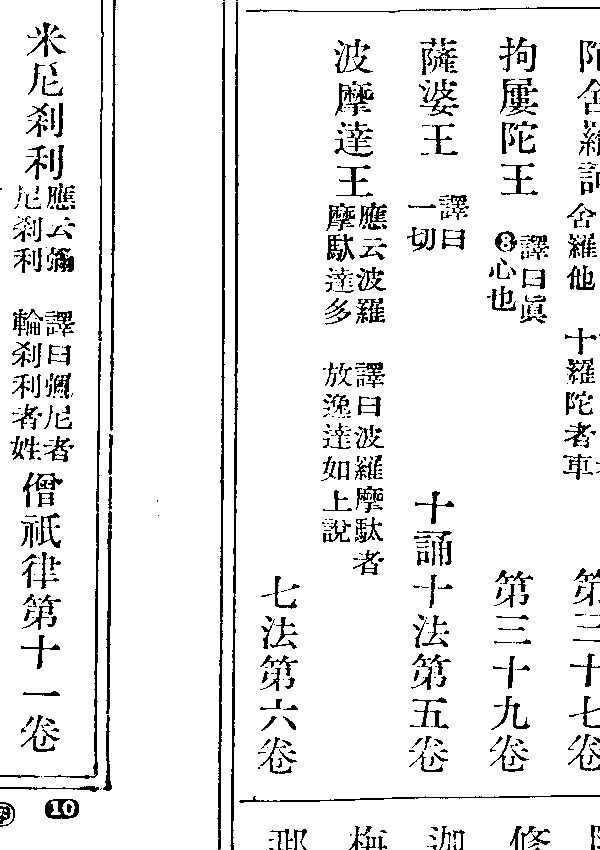 舍羅他
十羅陀者車
第三十七卷
拘屢陀王
譯曰眞
❽心也
第三十九卷
薩婆王
譯曰
一切
十誦十法第五卷
波摩達王
應云波羅
摩馱達多
譯曰波羅摩馱者
放逸達如上說
七法第六卷
米尼刹利
應云彌
尼刹利
譯曰尼者
輪刹利者姓
僧祇律第十一卷
10